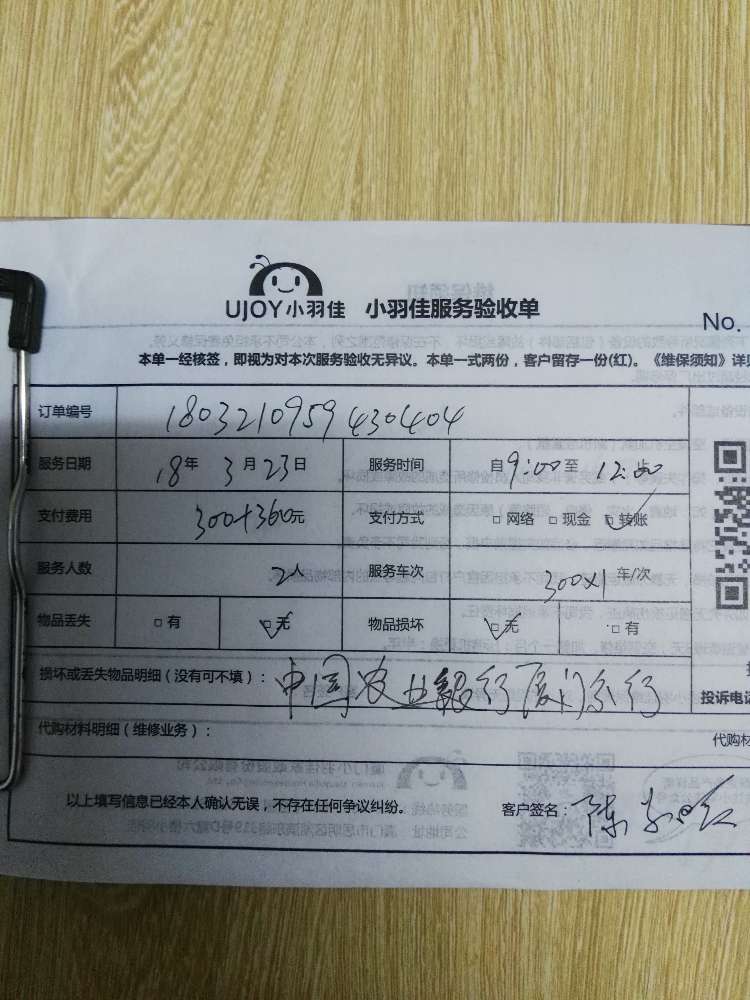 UJOY小羽佳 小羽佳服务验收单
No.
本单一经核签，即视为对本次服务验收无异议。本单一式两份，客户留存一份(红)。《维保须知》详见
订单编号 1803210959430404
服务日期 18年 3月23日 服务时间 自9:00至 12:00
支付费用 300+360元 支付方式 □网络 □现金 □转账
服务人数 2人 服务车次 300×1 车/次
物品丢失 □有 □无 物品损坏 □无 □有
损坏或丢失物品明细（没有可不填）：中国农业银行厦门分行
投诉电话
代购材料明细（维修业务）：
代购材
以上填写信息已经本人确认无误，不存在任何争议纠纷。 客户签名：陈